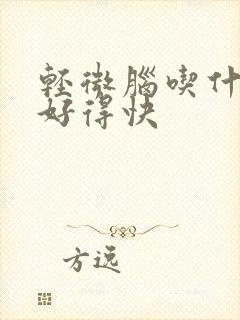 輕微腦喫什
好得快
方远